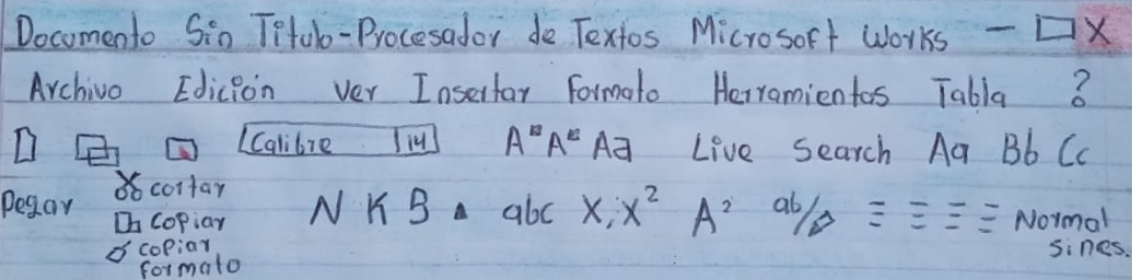 Documento Sin Titulo-Procesador de Textos Microsoft Works - □ X
Archivo Edición Ver Insertar Formato Herramientas Tabla ?
Calibre 14 A A Aa Live Search Aa Bb Cc
Pegar cortar N K S abc X, X² A² ab Normal
copiar sines.
copiar
formato